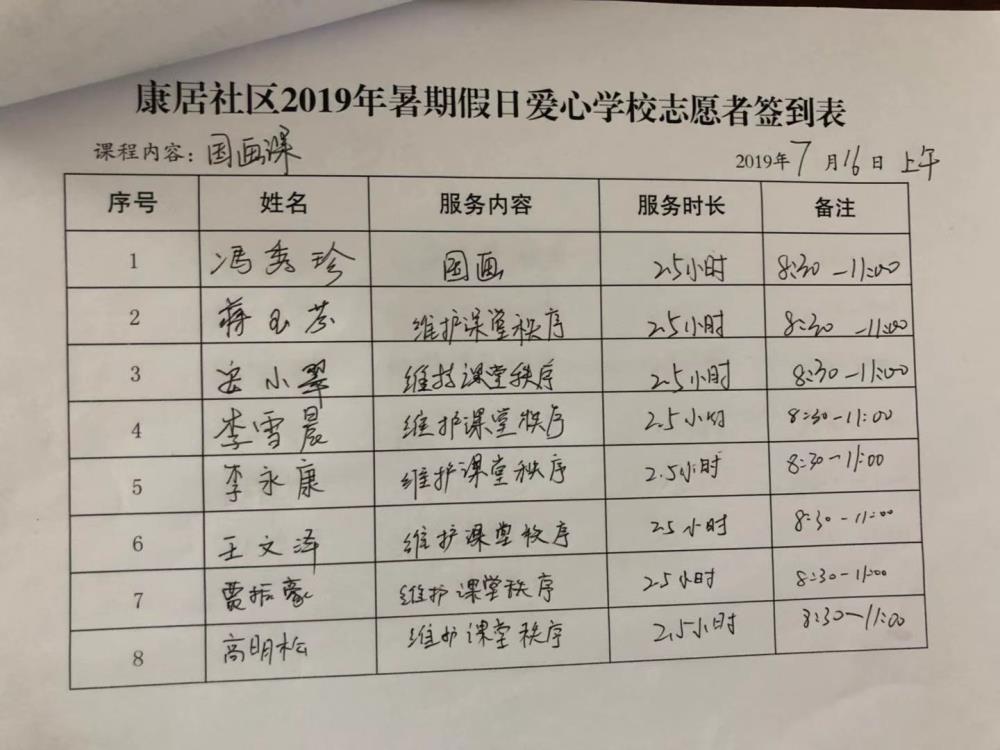 康居社区2019年暑期假日爱心学校志愿者签到表
课程内容：国画课 2019年7月16日 上午
序号 姓名 服务内容 服务时长 备注
1 冯秀珍 国画 2.5小时 8:30-11:00
2 蒋玉芬 维护课堂秩序 2.5小时 8:30-11:00
3 岳小翠 维持课堂秩序 2.5小时 8:30-11:00
4 李雪晨 维护课堂秩序 2.5小时 8:30-11:00
5 李永康 维护课堂秩序 2.5小时 8:30-11:00
6 王文泽 维护课堂秩序 2.5小时 8:30-11:00
7 贾振豪 维护课堂秩序 2.5小时 8:30-11:00
8 高明松 维护课堂秩序 2.5小时 8:30-11:00